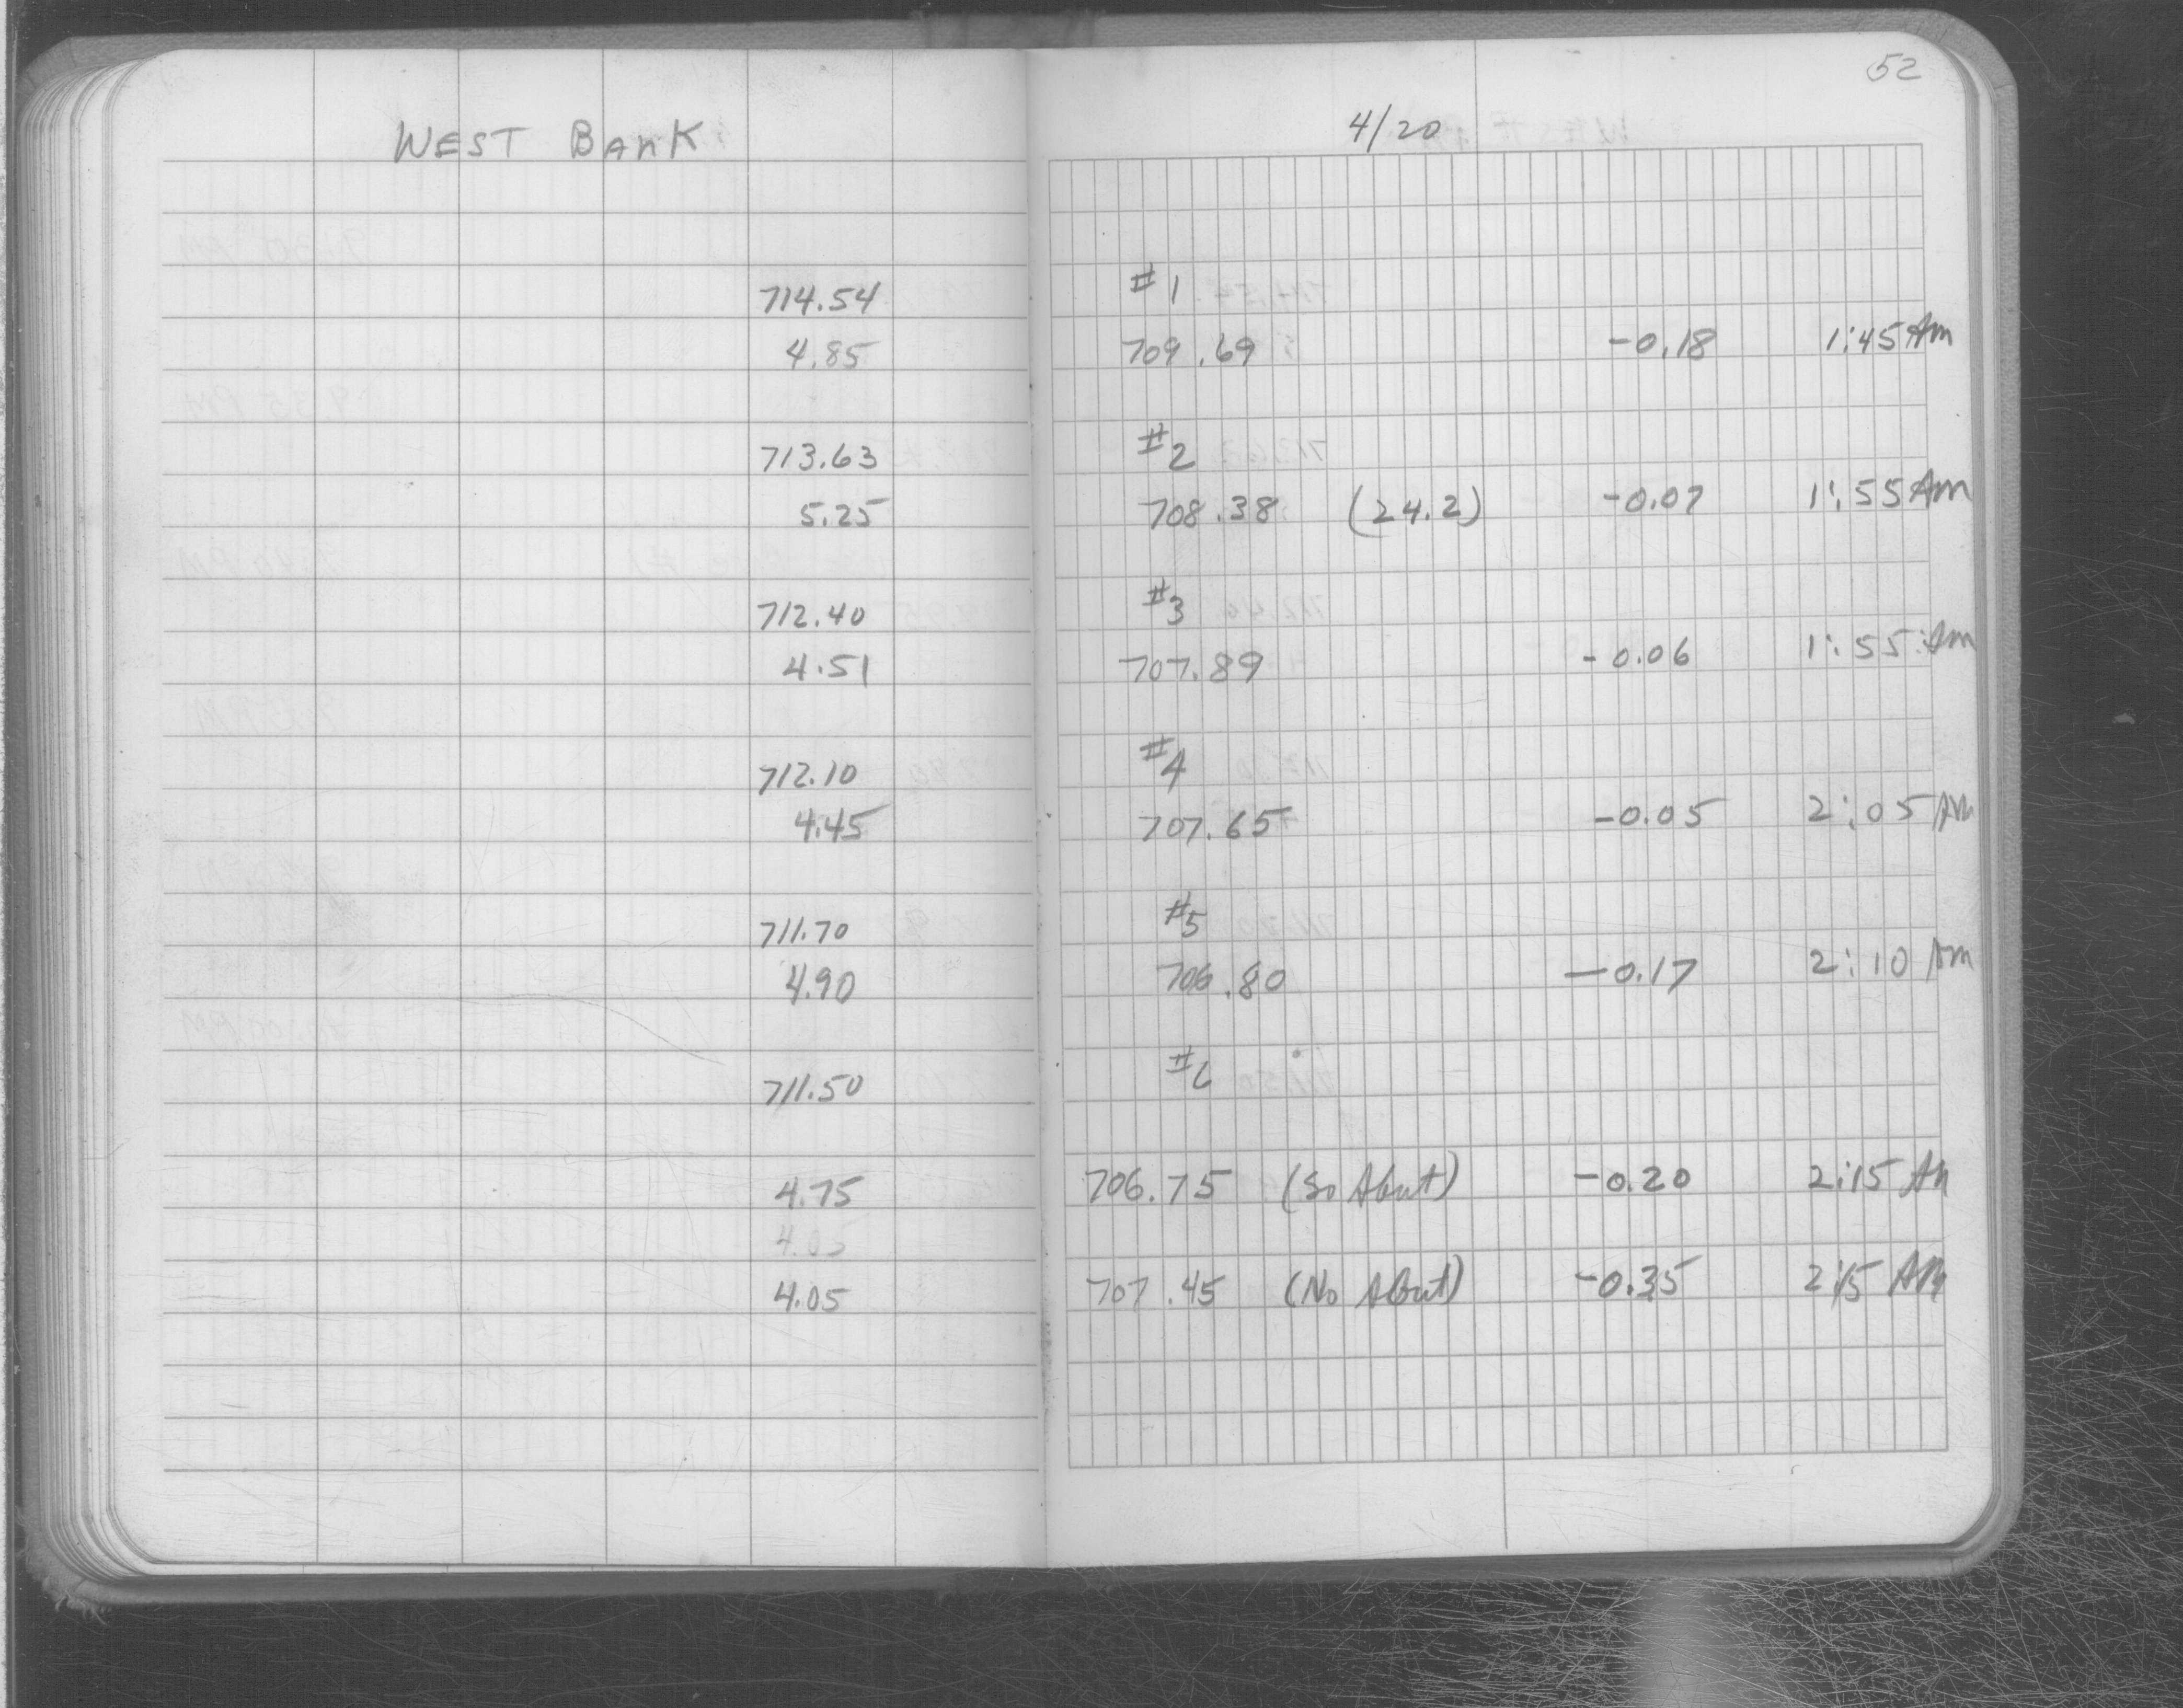 52
WEST BANK 4/20
714.54 #1
4.85 709.69 -0.18 1:45 AM
713.63 #2
5.25 708.38 (24.2) -0.07 1:55 AM
712.40 #3
4.51 707.89 -0.06 1:55 AM
712.10 #4
4.45 707.65 -0.05 2:05 AM
711.70 #5
4.90 706.80 -0.17 2:10 AM
711.50 #6
4.75 706.75 (So Abut) -0.20 2:15 AM
4.05 707.45 (No Abut) -0.35 2:15 AM